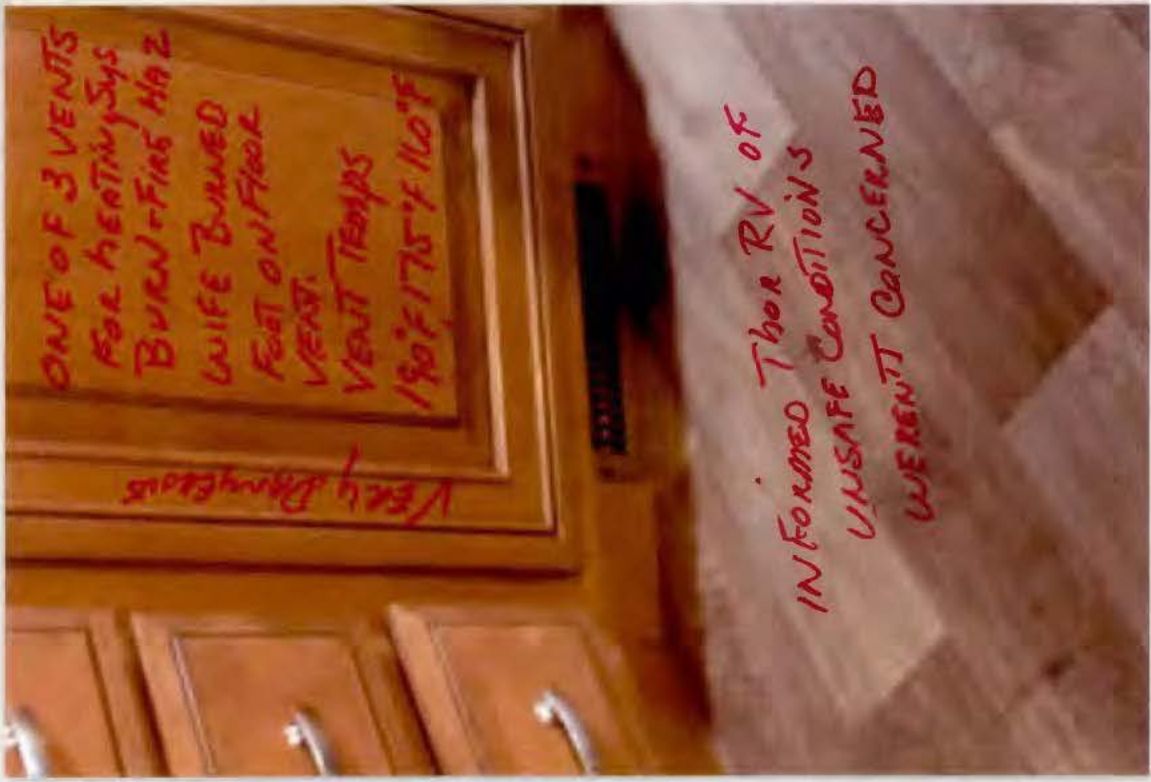 ONE OF 3 VENTS
FOR HEATING SYS
BURN-FIRE HAZ
WIFE BURNED
FOOT ON FLOOR
VENT.
VENT TEMPS
190°F 175°F 160°F
VERY DANGEROUS
INFORMED THOR RV OF
UNSAFE CONDITIONS
WERENTT CONCERNED